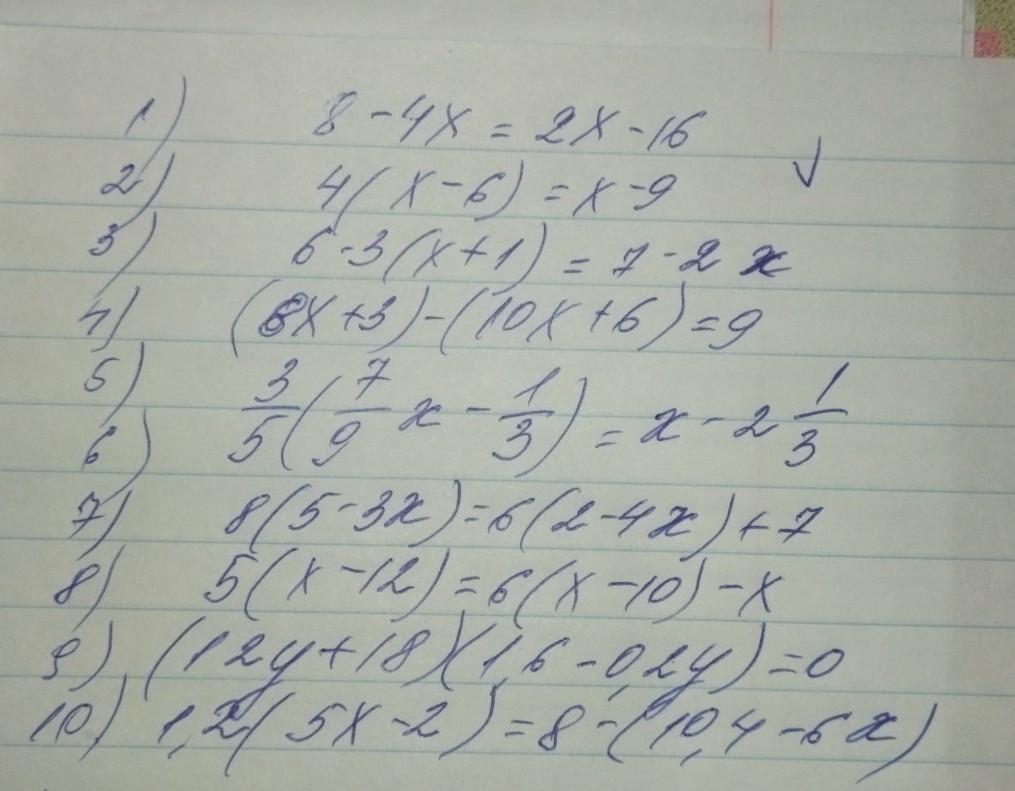 1) 8 - 4x = 2x - 16
2) 4(x - 6) = x - 9
3) 6 - 3(x + 1) = 7 - 2x
4) (8x + 3) - (10x + 6) = 9
5) 6) 3/5 (7/9 x - 1/3) = x - 2 1/3
7) 8(5 - 3x) = 6(2 - 4x) + 7
8) 5(x - 12) = 6(x - 10) - x
9) (12y + 18)(1,6 - 0,2y) = 0
10) 1,2(5x - 2) = 8 - (10,4 - 6x)